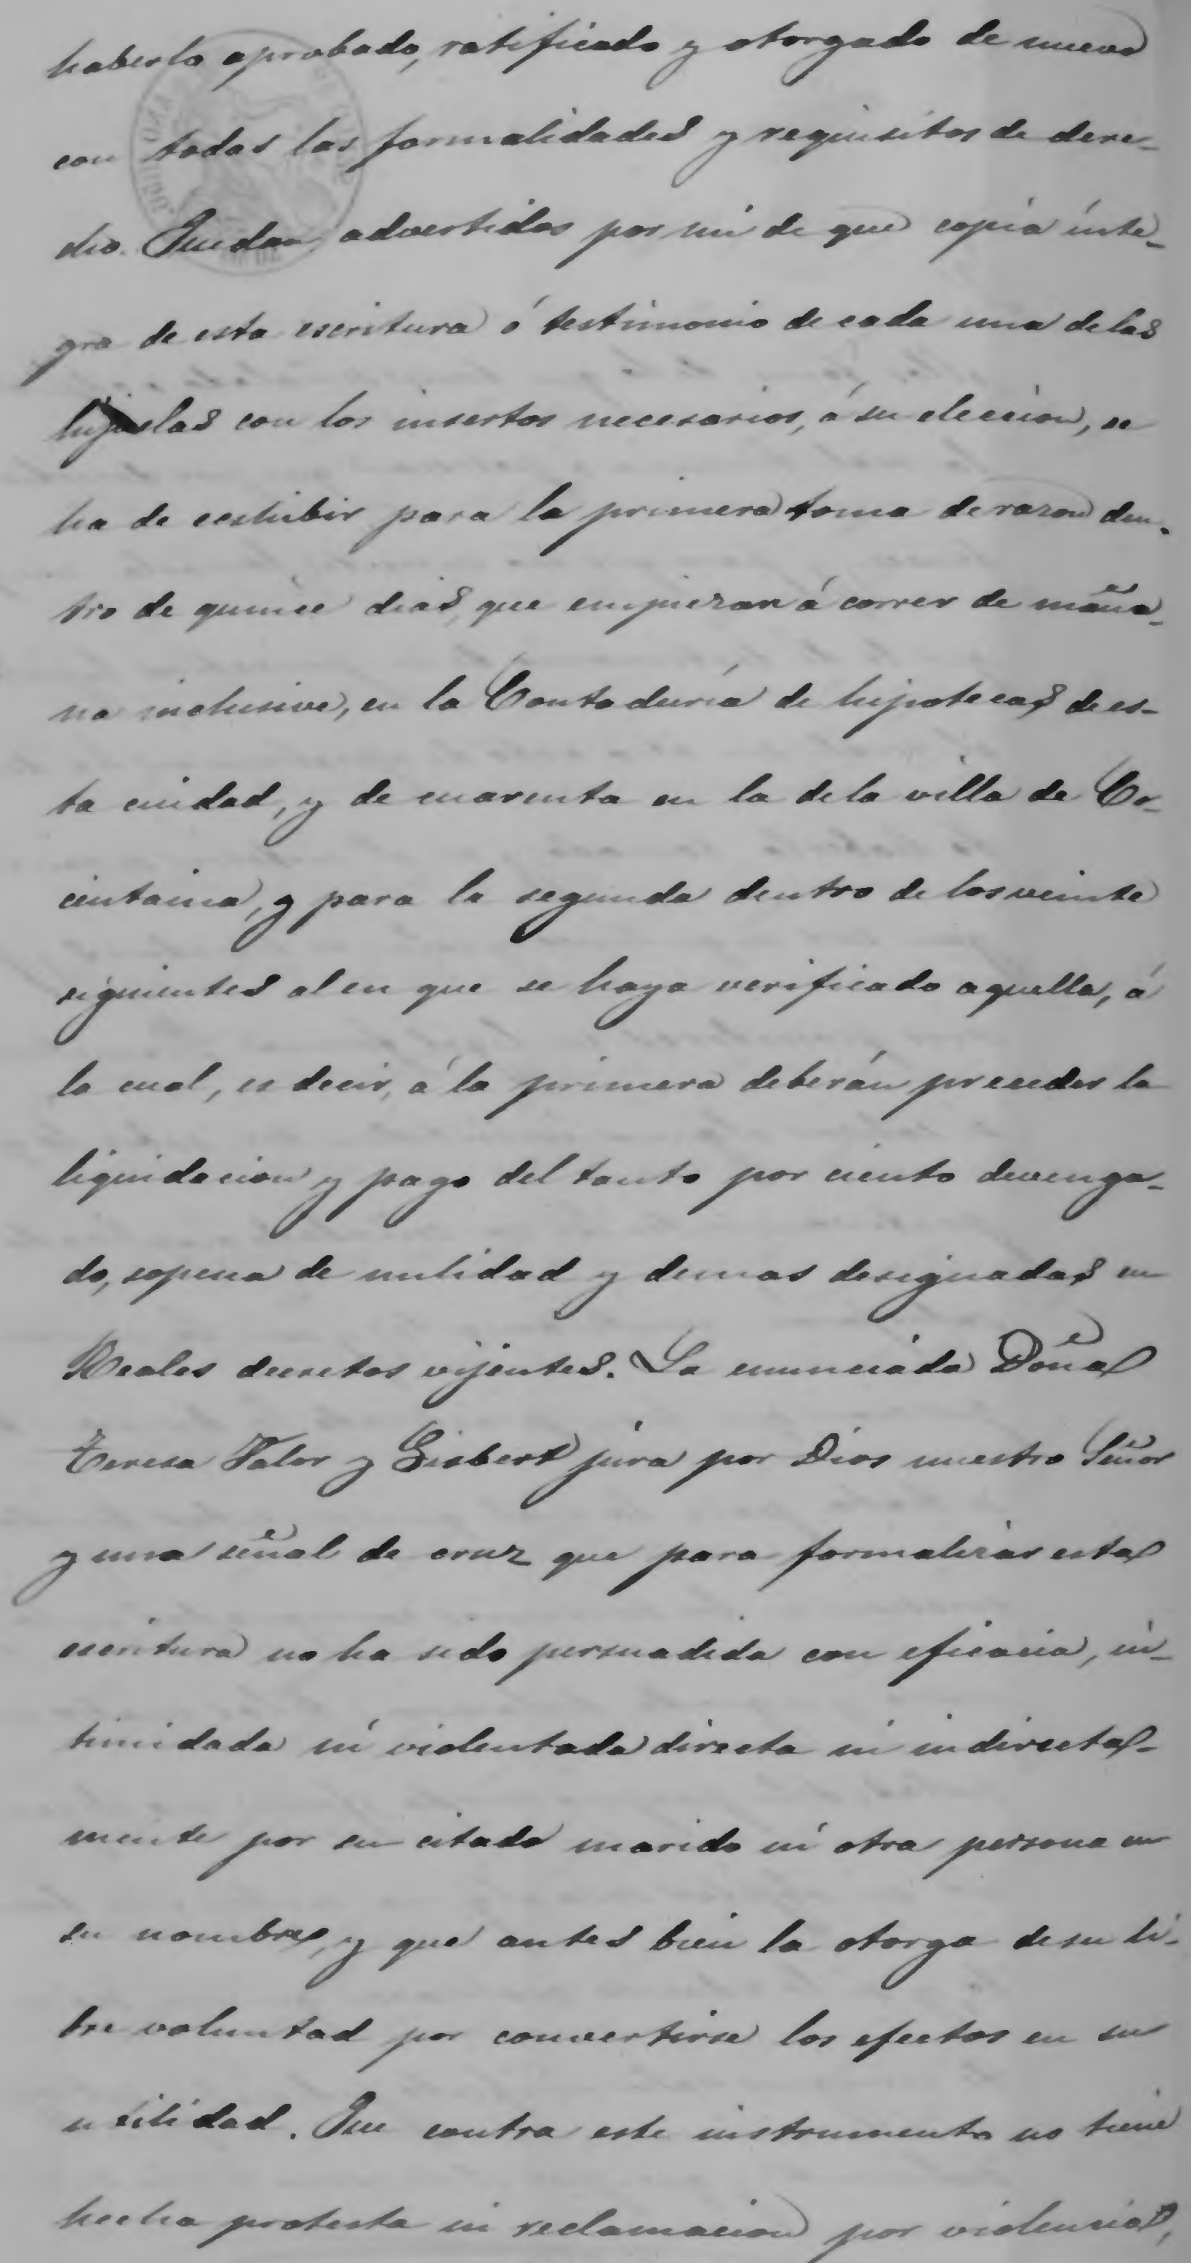 haberlo aprobado, ratificado y otorgado de nuevo
con todas las formalidades y requisitos de dere-
cho. Quedan advertidos por mi de que copia ínte-
gra de esta escritura ó testimonio de cada una de las
hijuelas con los insertos necesarios, á su eleccion, se
ha de ecshibir para la primera toma de razon den-
tro de quince dias, que empiezan á correr de maña-
na inclusive, en la Contaduría de hipotecas de es-
ta ciudad, y de cuarenta en la de la villa de Co-
centaina, y para la segunda dentro de los veinte
siguientes al en que se haya verificado aquella, á
la cual, es decir, á la primera deberán preceder la
liquidacion y pago del tanto por ciento devenga-
do, sopena de nulidad y demas designadas en
Reales decretos vijentes. La enunciada Doña
Teresa Valor y Gisbert jura por Dios nuestro Señor
y una señal de cruz que para formalizar esta
escritura no ha sido persuadida con eficacia, in-
timidada ni violentada directa ni indirecta-
mente por su citado marido ni otra persona en
su nombre, y que antes bien la otorga de su li-
bre voluntad por convertirse los efectos en su
utilidad. Que contra este instrumento no tiene
hecha protesta ni reclamacion por violencia,